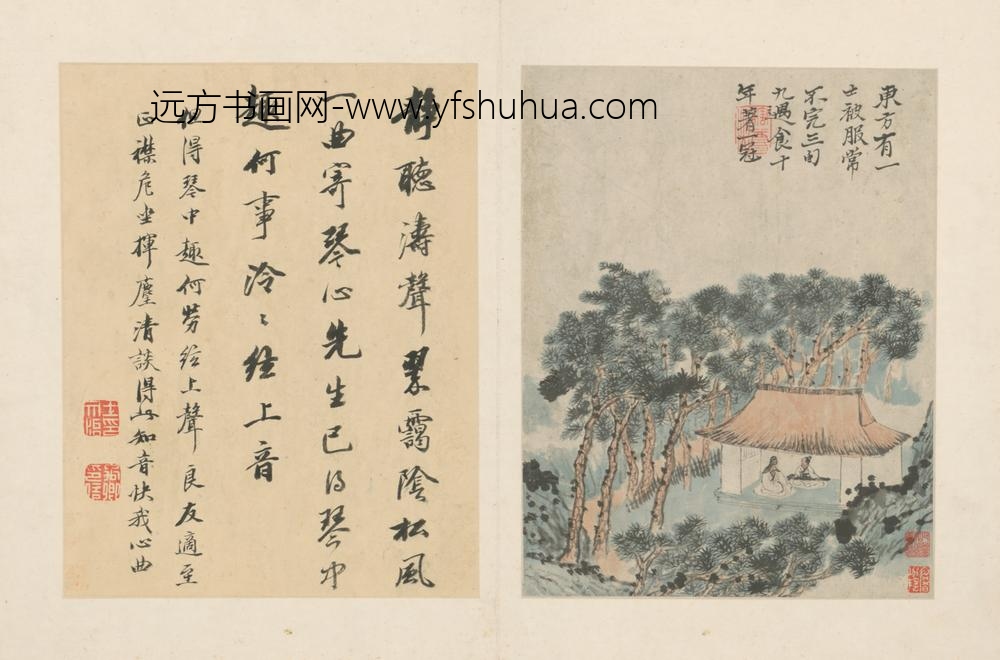 東方有一
士被服常
不完三旬
九遇食十
年著一冠
靜聽濤聲翠靄陰松風
一曲寄琴心先生已得琴中
趣何事泠〻絃上音
但得琴中趣何勞絃上聲良友適至
正襟危坐揮麈清談得此知音快我心曲
远方书画网-www.yfshuhua.com